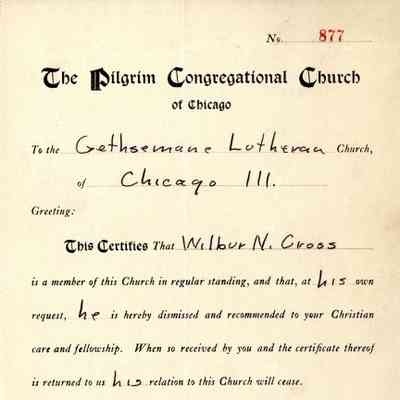 No. 877
The Pilgrim Congregational Church
of Chicago
To the Gethsemane Lutheran Church,
of Chicago Ill.
Greeting:
This Certifies That Wilbur N. Cross
is a member of this Church in regular standing, and that, at his own
request, he is hereby dismissed and recommended to your Christian
care and fellowship. When so received by you and the certificate thereof
is returned to us his relation to this Church will cease.